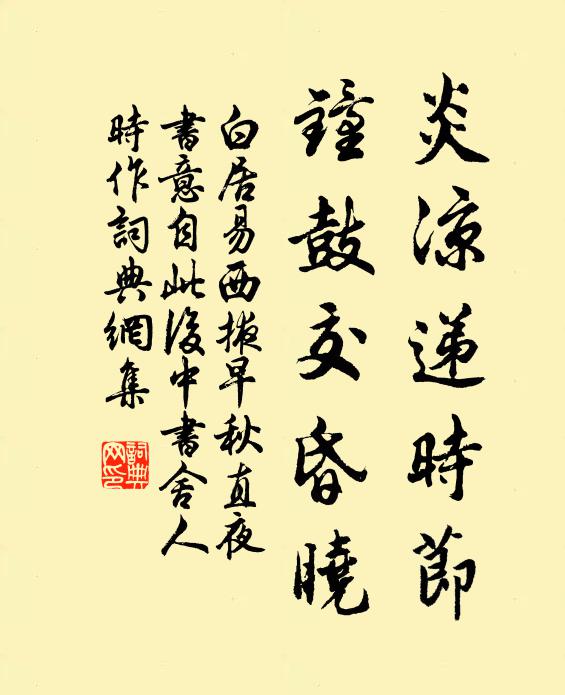 炎涼递時節
鐘鼓交昏曉
白居易西掖早秋直夜
書意自此後中書舍人
時作詞典網集
詞典网印